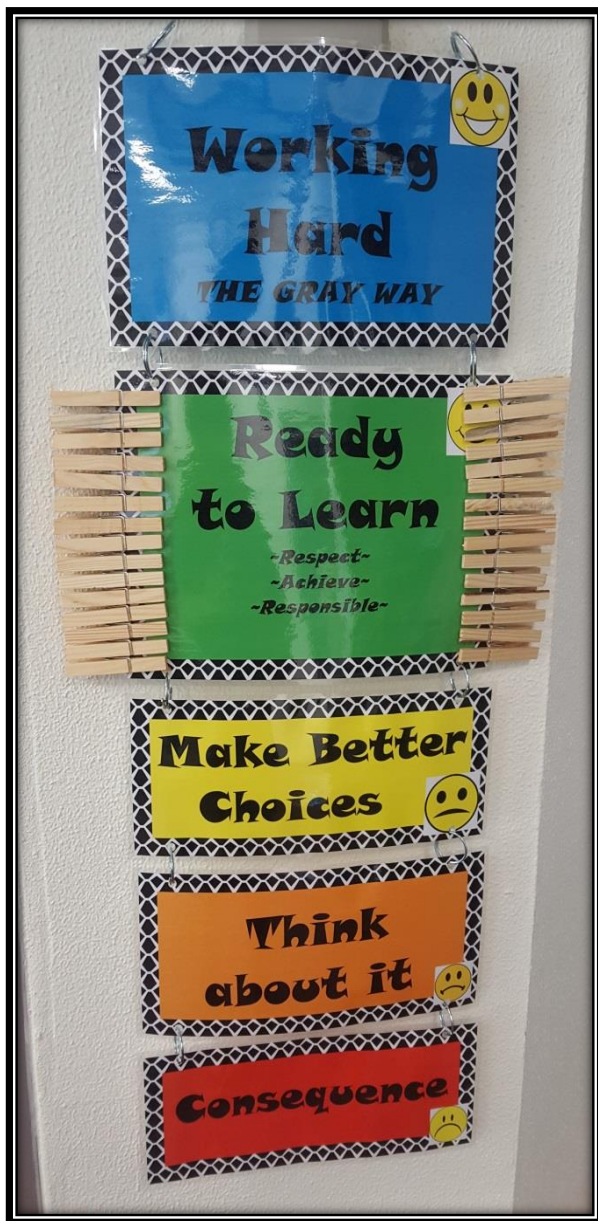 Working
Hard
THE GRAY WAY
Ready
to Learn
~Respect~
~Achieve~
~Responsible~
Make Better
Choices
Think
about it
Consequence